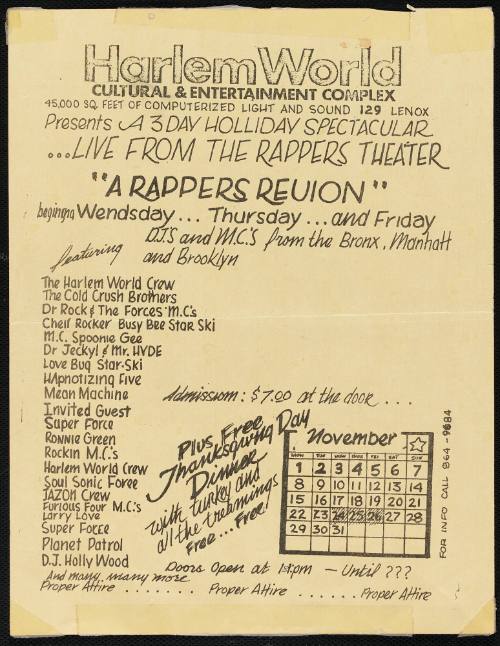 Harlem World
CULTURAL & ENTERTAINMENT COMPLEX
45,000 SQ. FEET OF COMPUTERIZED LIGHT AND SOUND 129 LENOX
Presents A 3 DAY HOLLIDAY SPECTACULAR
...LIVE FROM THE RAPPERS THEATER
"A RAPPERS REUION"
begingng Wendsday... Thursday...and Friday
featuring D.J.'S and M.C.'S from the Bronx, Manhatt
and Brooklyn
The Harlem World Crew
The Cold Crush Brothers
Dr Rock & The Forces M.C's
Cheif Rocker Busy Bee Star Ski
M.C. Spoonie Gee
Dr Jeckyl & Mr. HYDE
Love Bug Star-Ski
HApnotizing Five
Mean Machine
Invited Guest
Super Force
Ronnie Green
Rockin M.C.'s
Harlem World Crew
Soul Sonic Force
JAZON Crew
Furious Four M.C.'s
Larry Love
Super Force
Planet Patrol
D.J. Holly Wood
And many, many more
Admission: $7.00 at the door...
Plus, Free
Thanksgiving Day
Dinner
with turkey and
all the trammings
Free...Free!
November
MON TUE WED THUR FRI SAT SUN
1 2 3 4 5 6 7
8 9 10 11 12 13 14
15 16 17 18 19 20 21
22 23 24 25 26 27 28
29 30 31
FOR INFO CALL 864-9684
Doors Open at pm – Until ???
Proper Attire ....... Proper Attire ...... Proper Attire